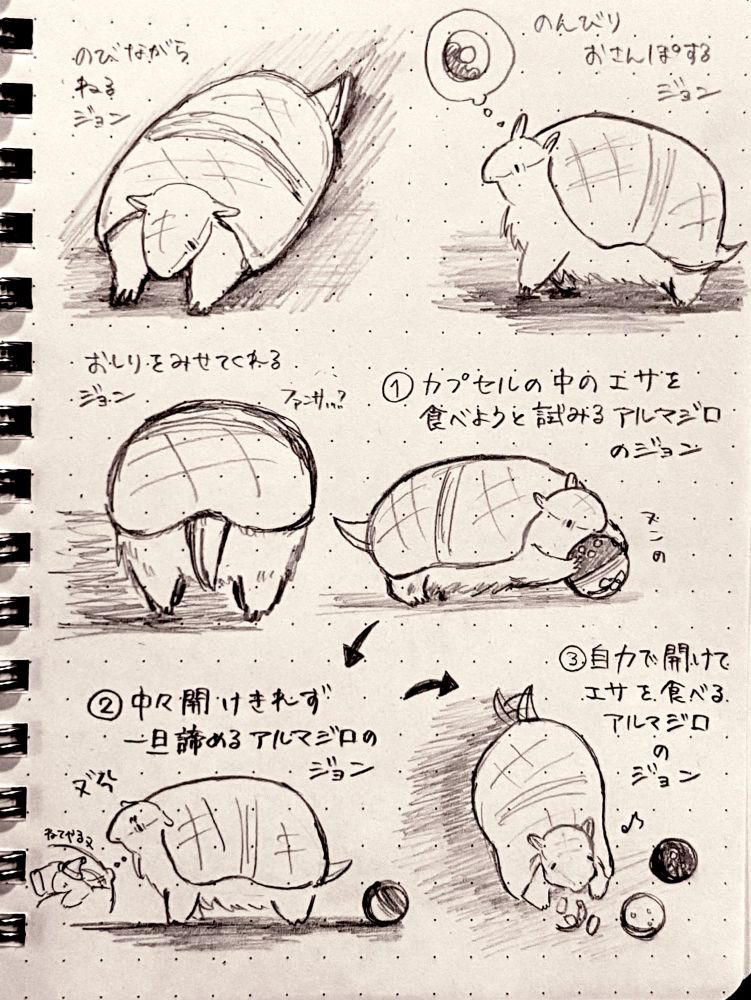 のびながら
ねる
ジョン
のんびり
おさんぽする
ジョン
おしりをみせてくれる
ジョン
ファンサ...?
①カプセルの中のエサを
食べようと試みるアルマジロ
のジョン
ヌンの
②中々開けきれず
一旦諦めるアルマジロの
ジョン
ねてやるヌ
③自力で開けて
エサを食べる
アルマジロ
の
ジョン